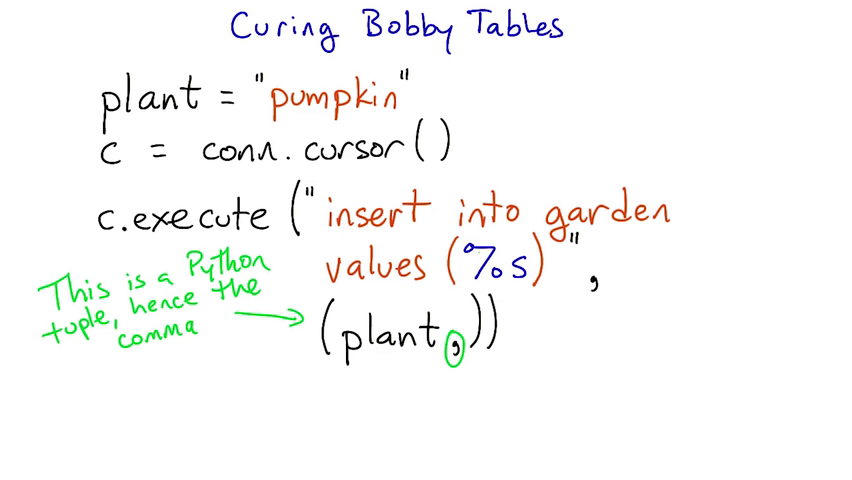 Curing Bobby Tables
plant = "pumpkin"
c = conn.cursor()
c.execute ("insert into garden
values (%s)",
(plant,))
This is a Python
tuple, hence the
comma